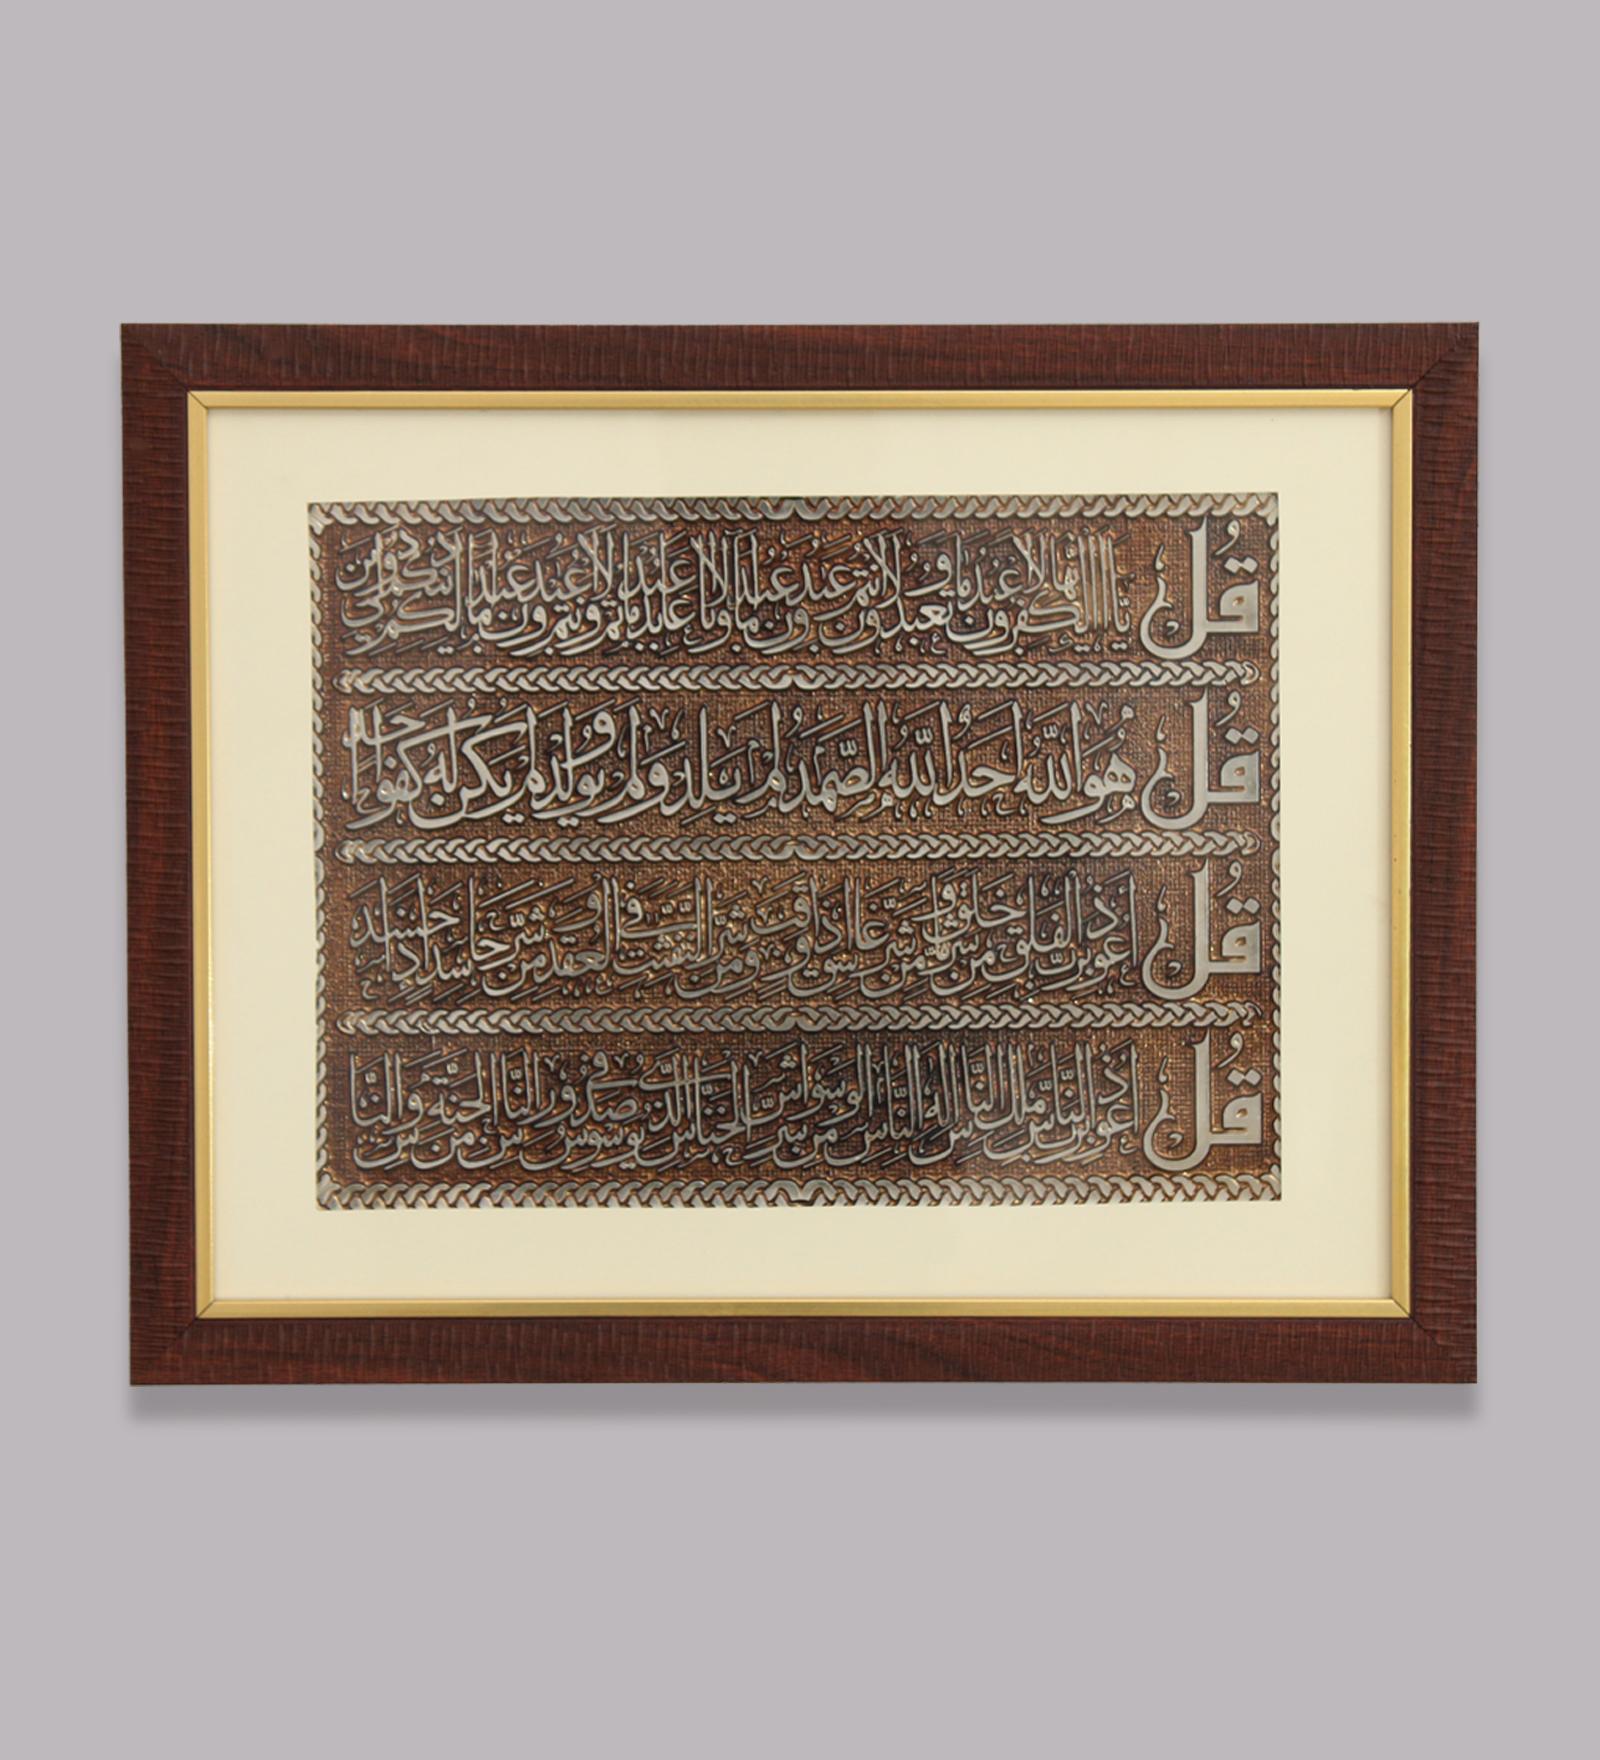 قُل يَا أَيُّهَا الكَافِرُونَ لَا أَعْبُدُ مَا تَعْبُدُونَ وَلَا أَنتُمْ عَابِدُونَ مَا أَعْبُدُ وَلَا أَنَا عَابِدٌ مَا عَبَدتُّمْ وَلَا أَنتُمْ عَابِدُونَ مَا أَعْبُدُ لَكُمْ دِينُكُمْ وَلِيَ دِينِ
قُل هُوَ اللَّهُ أَحَدٌ اللَّهُ الصَّمَدُ لَمْ يَلِدْ وَلَمْ يُولَدْ وَلَمْ يَكُن لَّهُ كُفُوًا أَحَدٌ
قُل أَعُوذُ بِرَبِّ الفَلَقِ مِن شَرِّ مَا خَلَقَ وَمِن شَرِّ غَاسِقٍ إِذَا وَقَبَ وَمِن شَرِّ النَّفَّاثَاتِ فِي العُقَدِ وَمِن شَرِّ حَاسِدٍ إِذَا حَسَدَ
قُل أَعُوذُ بِرَبِّ النَّاسِ مَلِكِ النَّاسِ إِلَهِ النَّاسِ مِن شَرِّ الوَسْوَاسِ الخَنَّاسِ الَّذِي يُوَسْوِسُ فِي صُدُورِ النَّاسِ مِنَ الجِنَّةِ وَالنَّاسِ